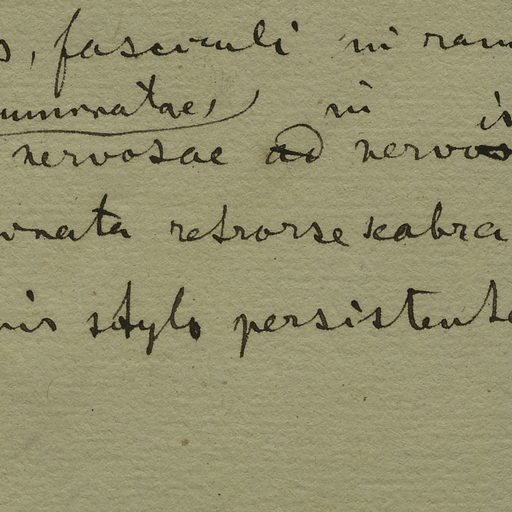 s, fasciculi in ram
uminatae, in is
nervosae ad nervos
nata retrorse scabra
nis stylo persistente